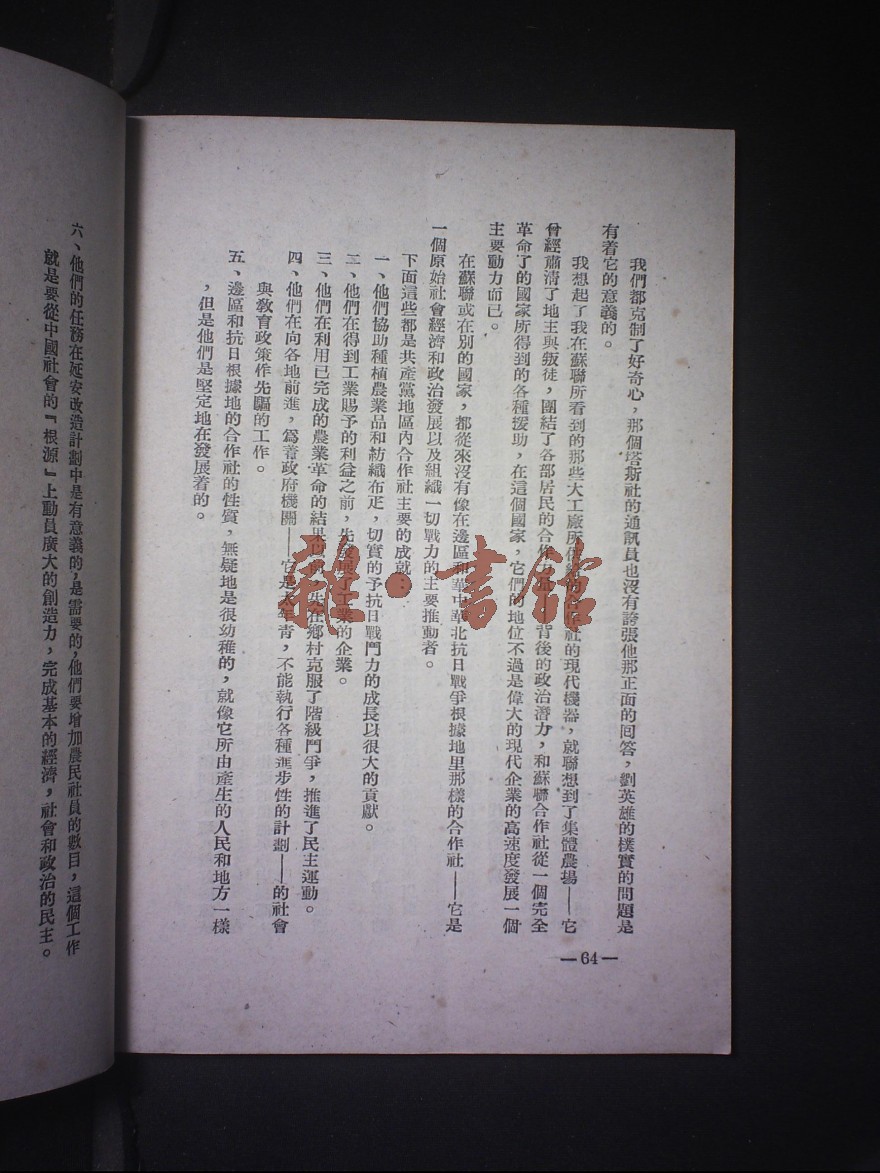 我們都克制了好奇心，那個塔斯社的通訊員也沒有誇張他那正面的回答，劉英雄的樸實的問題是
有着它的意義的。
我想起了我在蘇聯所看到的那些大工廠所供給的合作社的現代機器，就聯想到了集體農場——它
曾經肅清了地主與叛徒，團結了各部居民的合作 背後的政治潛力，和蘇聯合作社從一個完全
革命了的國家所得到的各種援助，在這個國家，它們的地位不過是偉大的現代企業的高速度發展一個
主要動力而已。
在蘇聯或在別的國家，都從來沒有像在邊區和華中華北抗日戰爭根據地里那樣的合作社——它是
一個原始社會經濟和政治發展以及組織一切戰力的主要推動者。
下面這些都是共產黨地區內合作社主要的成就：
一、他們協助種植農業品和紡織布疋，切實的予抗日戰鬥力的成長以很大的貢獻。
二、他們在得到工業賜予的利益之前，先發展了工業的企業。
三、他們在利用已完成的農業革命的結果以前，先在鄉村克服了階級鬥爭，推進了民主運動。
四、他們在向各地前進，爲着政府機關——它是太年青，不能執行各種進步性的計劃——的社會
與敎育政策作先驅的工作。
五、邊區和抗日根據地的合作社的性質，無疑地是很幼稚的，就像它所由產生的人民和地方一樣
，但是他們是堅定地在發展着的。
—64—
六、他們的任務在延安改造計劃中是有意義的，是需要的，他們要增加農民社員的數目，這個工作
就是要從中國社會的『根源』上動員廣大的創造力，完成基本的經濟，社會和政治的民主。
雜·書館